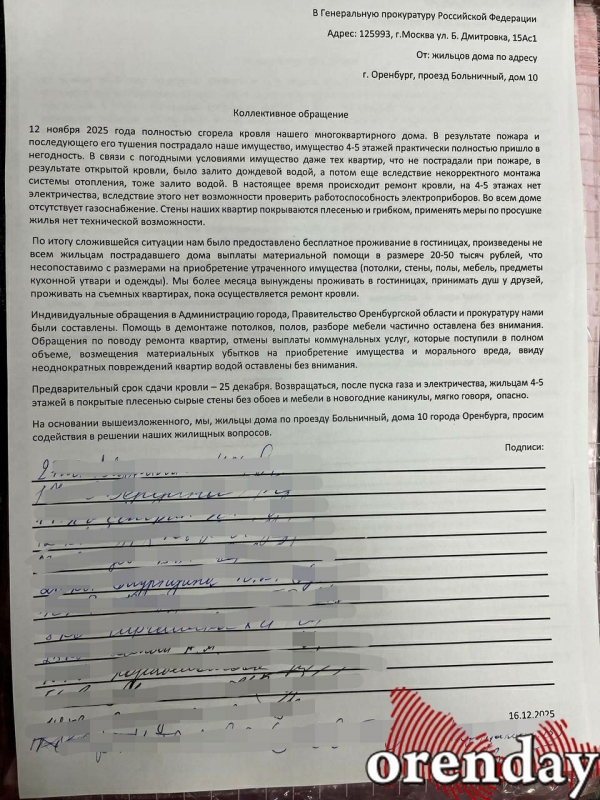 В Генеральную прокуратуру Российской Федерации
Адрес: 125993, г.Москва ул. Б. Дмитровка, 15Ас1
От: жильцов дома по адресу
г. Оренбург, проезд Больничный, дом 10
Коллективное обращение
12 ноября 2025 года полностью сгорела кровля нашего многоквартирного дома. В результате пожара и
последующего его тушения пострадало наше имущество, имущество 4-5 этажей практически полностью пришло в
негодность. В связи с погодными условиями имущество даже тех квартир, что не пострадали при пожаре, в
результате открытой кровли, было залито дождевой водой, а потом еще вследствие некорректного монтажа
системы отопления, тоже залито водой. В настоящее время происходит ремонт кровли, на 4-5 этажах нет
электричества, вследствие этого нет возможности проверить работоспособность электроприборов. Во всем доме
отсутствует газоснабжение. Стены наших квартир покрываются плесенью и грибком, применять меры по просушке
жилья нет технической возможности.
По итогу сложившейся ситуации нам было предоставлено бесплатное проживание в гостиницах, произведены не
всем жильцам пострадавшего дома выплаты материальной помощи в размере 20-50 тысяч рублей, что
несопоставимо с размерами на приобретение утраченного имущества (потолки, стены, полы, мебель, предметы
кухонной утвари и одежды). Мы более месяца вынуждены проживать в гостиницах, принимать душ у друзей,
проживать на съемных квартирах, пока осуществляется ремонт кровли.
Индивидуальные обращения в Администрацию города, Правительство Оренбургской области и прокуратуру нами
были составлены. Помощь в демонтаже потолков, полов, разборе мебели частично оставлена без внимания.
Обращения по поводу ремонта квартир, отмены выплаты коммунальных услуг, которые поступили в полном
объеме, возмещения материальных убытков на приобретение имущества и морального вреда, ввиду
неоднократных повреждений квартир водой оставлены без внимания.
Предварительный срок сдачи кровли – 25 декабря. Возвращаться, после пуска газа и электричества, жильцам 4-5
этажей в покрытые плесенью сырые стены без обоев и мебели в новогодние каникулы, мягко говоря, опасно.
На основании вышеизложенного, мы, жильцы дома по проезду Больничный, дома 10 города Оренбурга, просим
содействия в решении наших жилищных вопросов.
Подписи:
16.12.2025
orenday